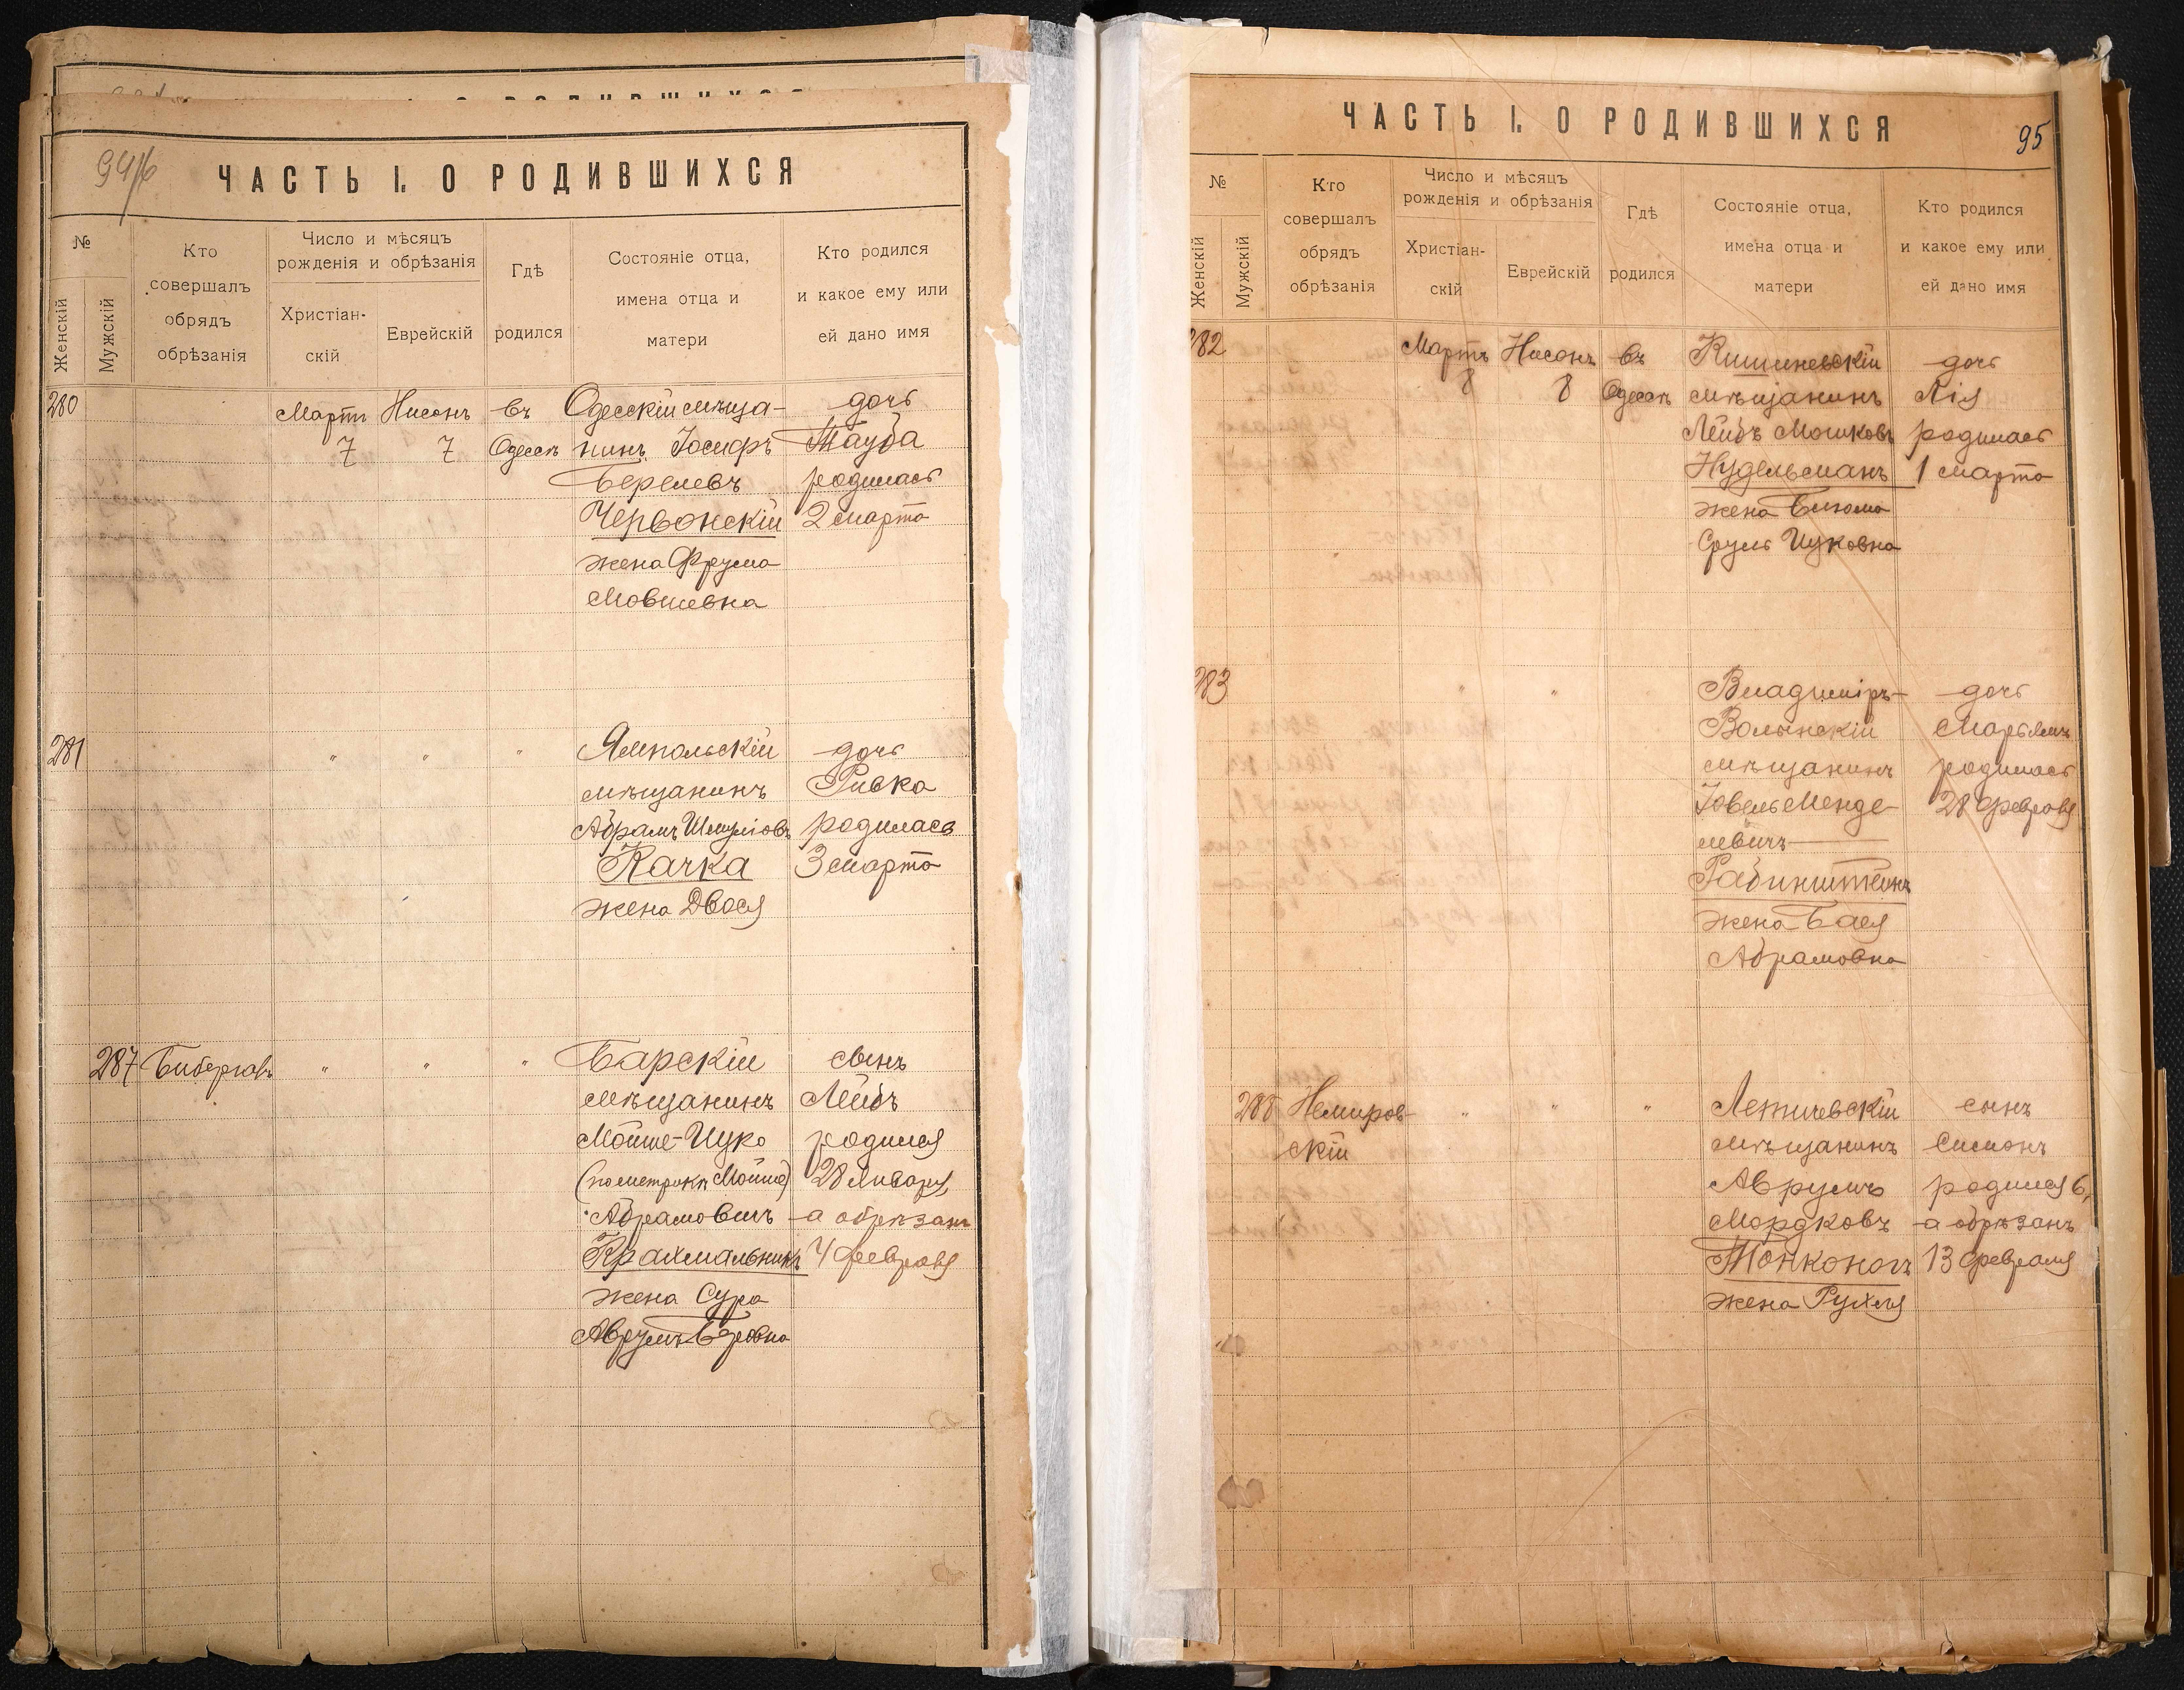 94/б
ЧАСТЬ I. О РОДИВШИХСЯ
№
Женскій
Мужскій
Кто
совершалъ
обрядъ
обрѣзанія
Число и мѣсяцъ
рожденія и обрѣзанія
Христіан-
скій
Еврейскій
Гдѣ
родился
Состояніе отца,
имена отца и
матери
Кто родился
и какое ему или
ей дано имя
280
Мартъ
7
Нисонъ
7
въ
Одессѣ
Одесскій мѣща-
нинъ Іосифъ
Берелевъ
Червонскій
жена Фрума
Мовшевна
дочь
Тауба
родилась
2 марта
281
" " "
Ямпольскій
мѣщанинъ
Абрамъ
Качка
жена Двося
дочь
Ривка
родилась
3 марта
287
" " "
Барскій
мѣщанинъ
Мойше-Ицко
(по метрикѣ Мойше)
Абрамовичъ
Крахмальникъ
жена Сура
Аврумъ-Беровна
сынъ
Лейбъ
родился
28 Января,
а обрѣзанъ
4 февраля
ЧАСТЬ I. О РОДИВШИХСЯ
95
№
Женскій
Мужскій
Кто
совершалъ
обрядъ
обрѣзанія
Число и мѣсяцъ
рожденія и обрѣзанія
Христіан-
скій
Еврейскій
Гдѣ
родился
Состояніе отца,
имена отца и
матери
Кто родился
и какое ему или
ей дано имя
282
Мартъ
8
Нисонъ
8
въ
Одессѣ
Кишиневскій
мѣщанинъ
Лейбъ Мошковъ
Нудельманъ
жена Блюма
Сруль Ицковна
дочь
Лія
родилась
1 марта
283
" "
Владиміръ-
Волынскій
мѣщанинъ
Іовель Менде-
левичъ
Рабинштейнъ
жена Бася
Абрамовна
дочь
Марьямъ
родилась
28 февраля
288
Немиров-
скій
" " "
Летичевскій
мѣщанинъ
Аврумъ
Мордковъ
Тонконогъ
жена Рухля
сынъ
Симонъ
родился 6,
а обрѣзанъ
13 февраля